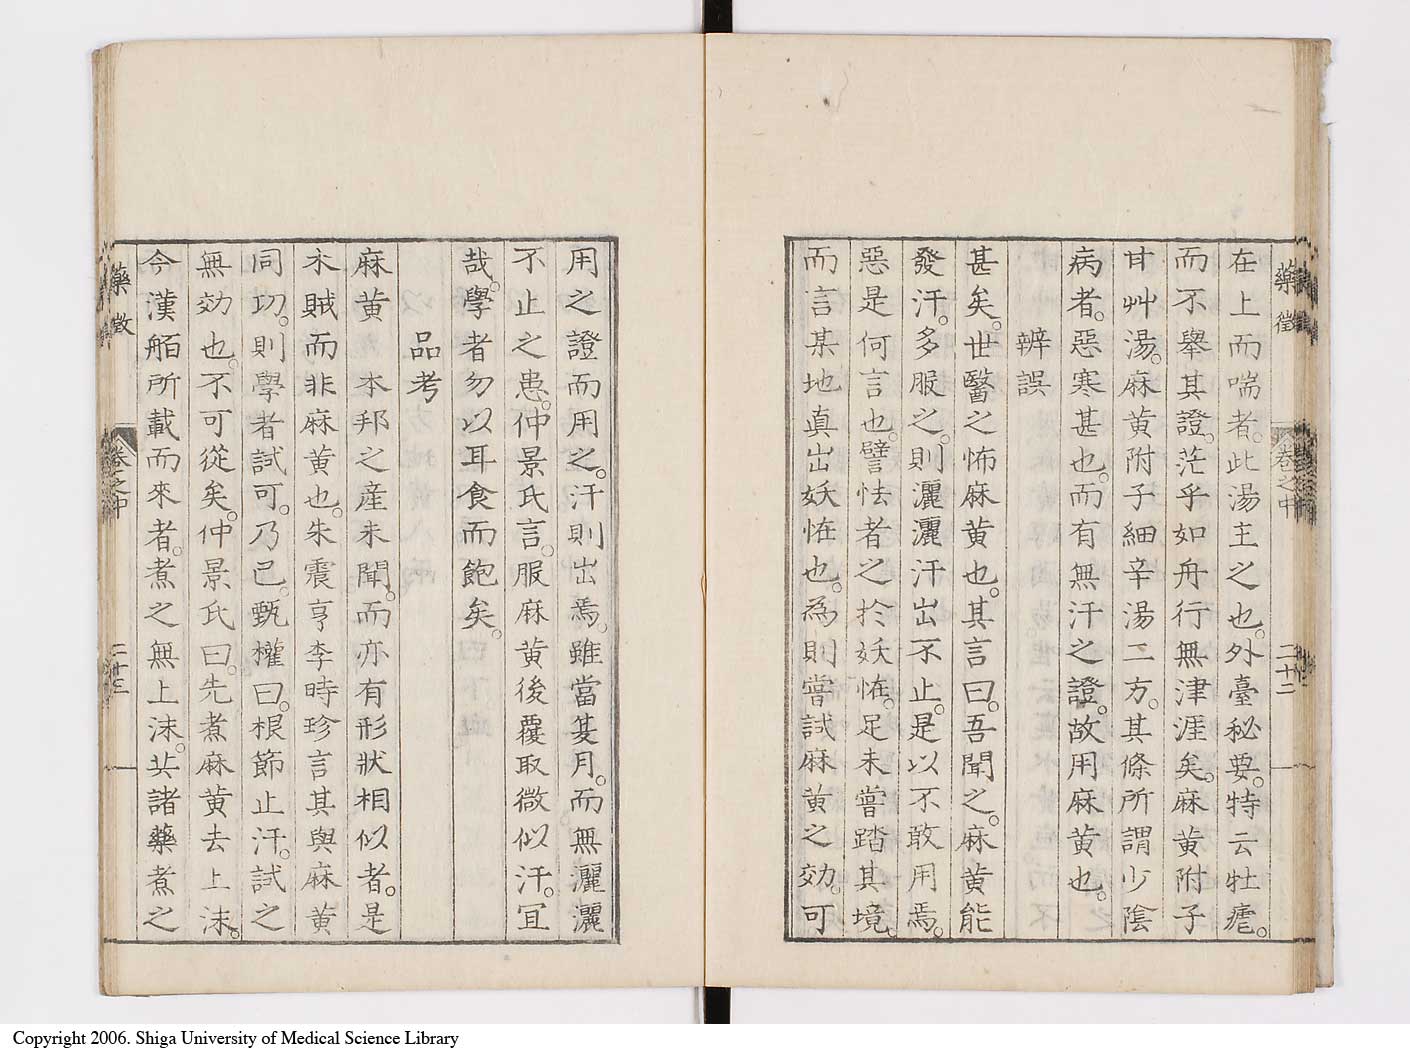 藥徵 卷之中 二十二
在上而喘者。此湯主之也。外臺秘要。特云牡瘧。
而不舉其證。茫乎如舟行無津涯矣。麻黄附子
甘艸湯。麻黄附子細辛湯二方。其條所謂少陰
病者。惡寒甚也。而有無汗之證。故用麻黄也。
辨誤
甚矣。世醫之怖麻黄也。其言曰。吾聞之。麻黄能
發汗。多服之。則灑灑汗出不止。是以不敢用焉。
惡是何言也。譬怯者之於妖恠。足未嘗踏其境。
而言某地真出妖恠也。為則嘗試麻黄之効。可
用之證而用之。汗則出焉。雖當夏月。而無灑灑
不止之患。仲景氏言。服麻黄後。覆取微似汗。宜
哉。學者勿以耳食而飽矣。
品考
麻黄 本邦之産未聞。而亦有形狀相似者。是
木賊而非麻黄也。朱震亨李時珍言其與麻黄
同功。則學者試可。乃已。甄權曰。根節止汗。試之
無効也。不可從矣。仲景氏曰。先煮麻黄去上沫。
今漢舶所載而來者。煮之無上沫。共諸藥煮之
藥徵 卷之中 二十三
Copyright 2006. Shiga University of Medical Science Library